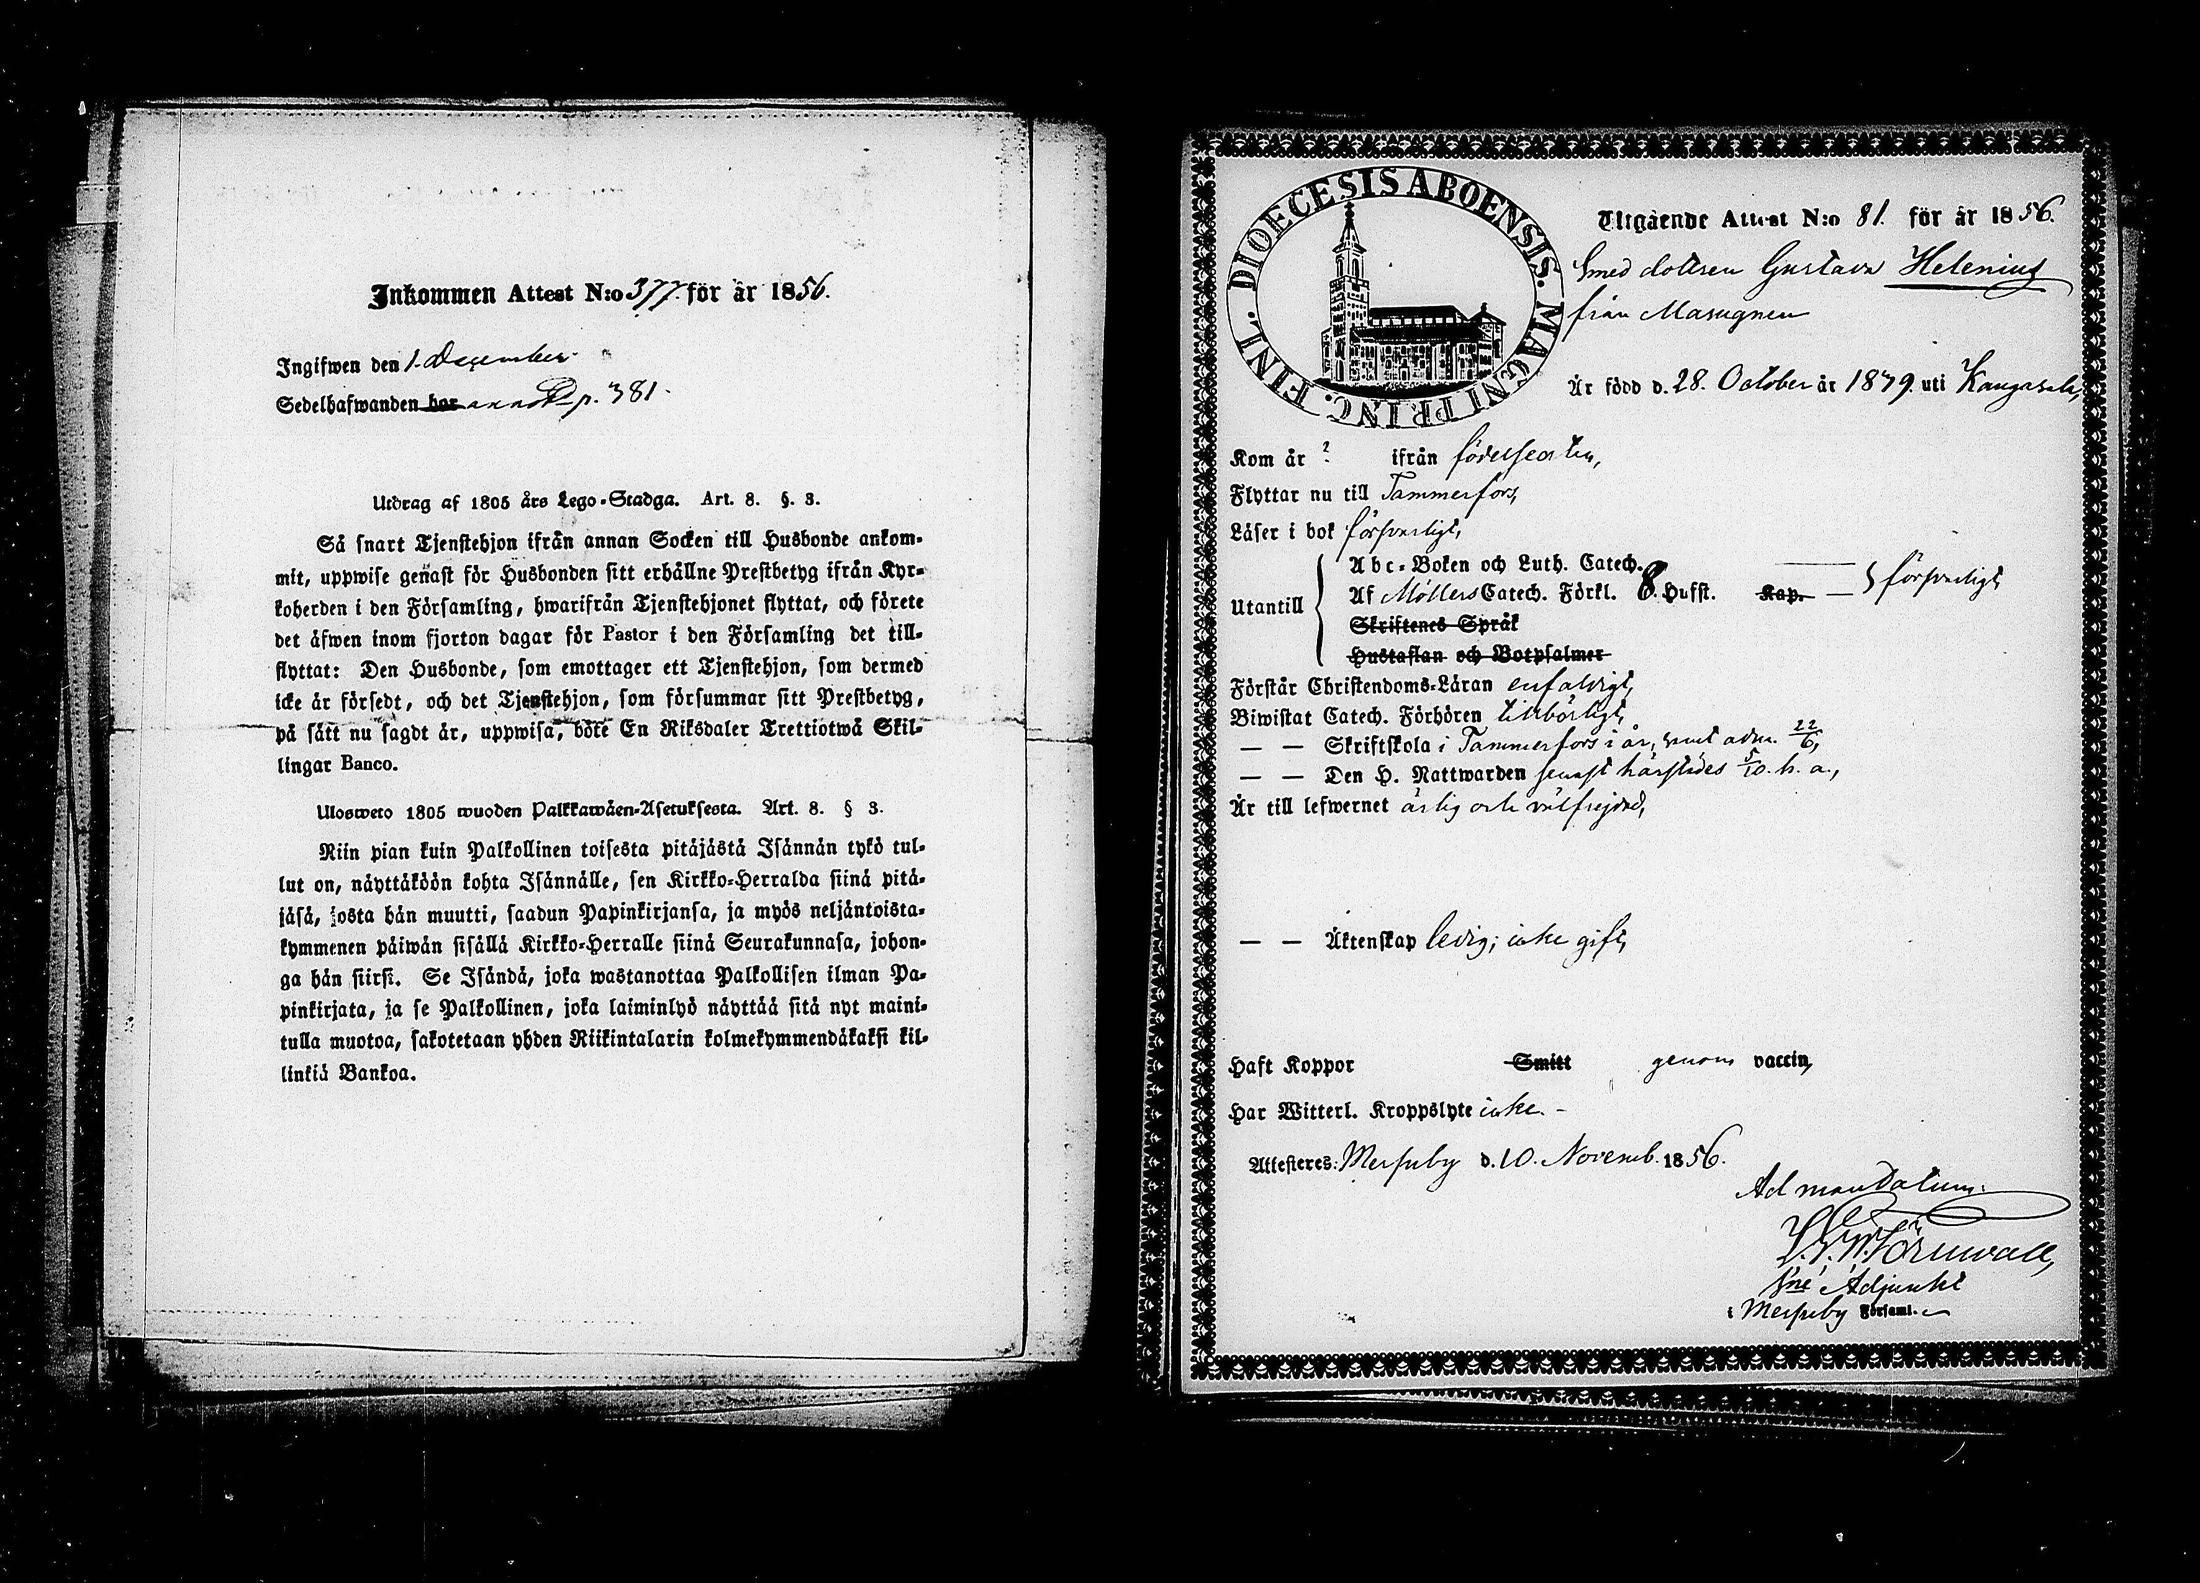 Inkommen Attest N:o 377. för år 1856.
Ingifwen den 1. December
Sedelhafwanden har p. 381.
Utdrag af 1805 års Lego-Stadga. Art. 8. §. 3.
Så snart Tjenstehjon ifrån annan Socken till Husbonde ankom-
mit, uppwise genast för Husbonden sitt erhållne Prestbetyg ifrån Kyr-
koherden i den Församling, hwarifrån Tjenstehjonet flyttat, och förete
det äfwen inom fjorton dagar för Pastor i den Församling det till-
flyttat: Den Husbonde, som emottager ett Tjenstehjon, som dermed
icke är försedt, och det Tjenstehjon, som försummar sitt Prestbetyg,
på sätt nu sagdt är, uppwisa, böte En Riksdaler Trettiotwå Skil-
lingar Banco.
Ulosweto 1805 wuoden Palkkawäen-Asetuksesta. Art. 8. § 3.
Niin pian kuin Palkollinen toisesta pitäjästä Isännän tykö tul-
lut on, näyttäköön kohta Isännälle, sen Kirkko-Herralda siinä pitä-
jäsä, josta hän muutti, saadun Papinkirjansa, ja myös neljäntoista-
kymmenen päiwän sisällä Kirkko-Herralle siinä Seurakunnasa, johon-
ga hän siirsi. Se Isändä, joka wastanottaa Palkollisen ilman Pa-
pinkirjata, ja se Palkollinen, joka laiminlyö näyttää sitä nyt maini-
tulla muotoa, sakotetaan yhden Riikintalarin kolmekymmendäkaksi kil-
linkiä Bankoa.
DIOECESIS ABOENSIS. MAGNI PRINC. FINL.
Utgående Attest N:o 81. för år 1856.
Smed dottren Gustava Helenius
från Masugnen
Är född d. 28. October år 1839. uti Kangasala,
Kom år ? ifrån födelseorten,
Flyttar nu till Tammerfors,
Läser i bok försvarligt,
Utantill
Abc-Boken och Luth. Catech.
Af Möllers Catech. Förkl. 8. Hufst. Kap. — försvarligt
Skriftenes Språk
Hustaflan och Botpsalmer
Förstår Christendoms-Läran enfaldigt,
Biwistat Catech. Förhören tillbörligt,
— — Skriftskola i Tammerfors i år, samt adm. 22/6,
— — Den H. Nattwarden senast härstädes 5/10. h. a.,
Är till lefwernet ärlig och välfrejdad,
— — Äktenskap ledig; icke gift,
Haft Koppor Smitt genom vaccin,
Har Witterl. Kroppslyte icke. -
Attesteres: Messuby d. 10. Novemb. 1856.
Ad mandatum:
Törnwall,
Adjunkt
i Messuby Församl.